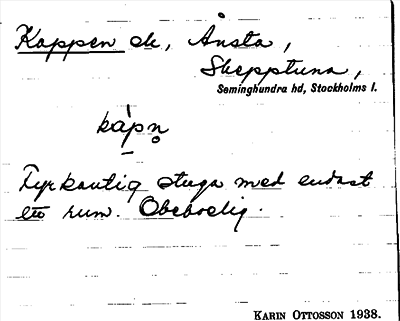 Kappen de, Ånsta,
Skepptuna,
Seminghundra hd, Stockholms l.
kàpn̥
Fyrkantig stuga med endast
ett rum. Obeboelig.
KARIN OTTOSSON 1938.